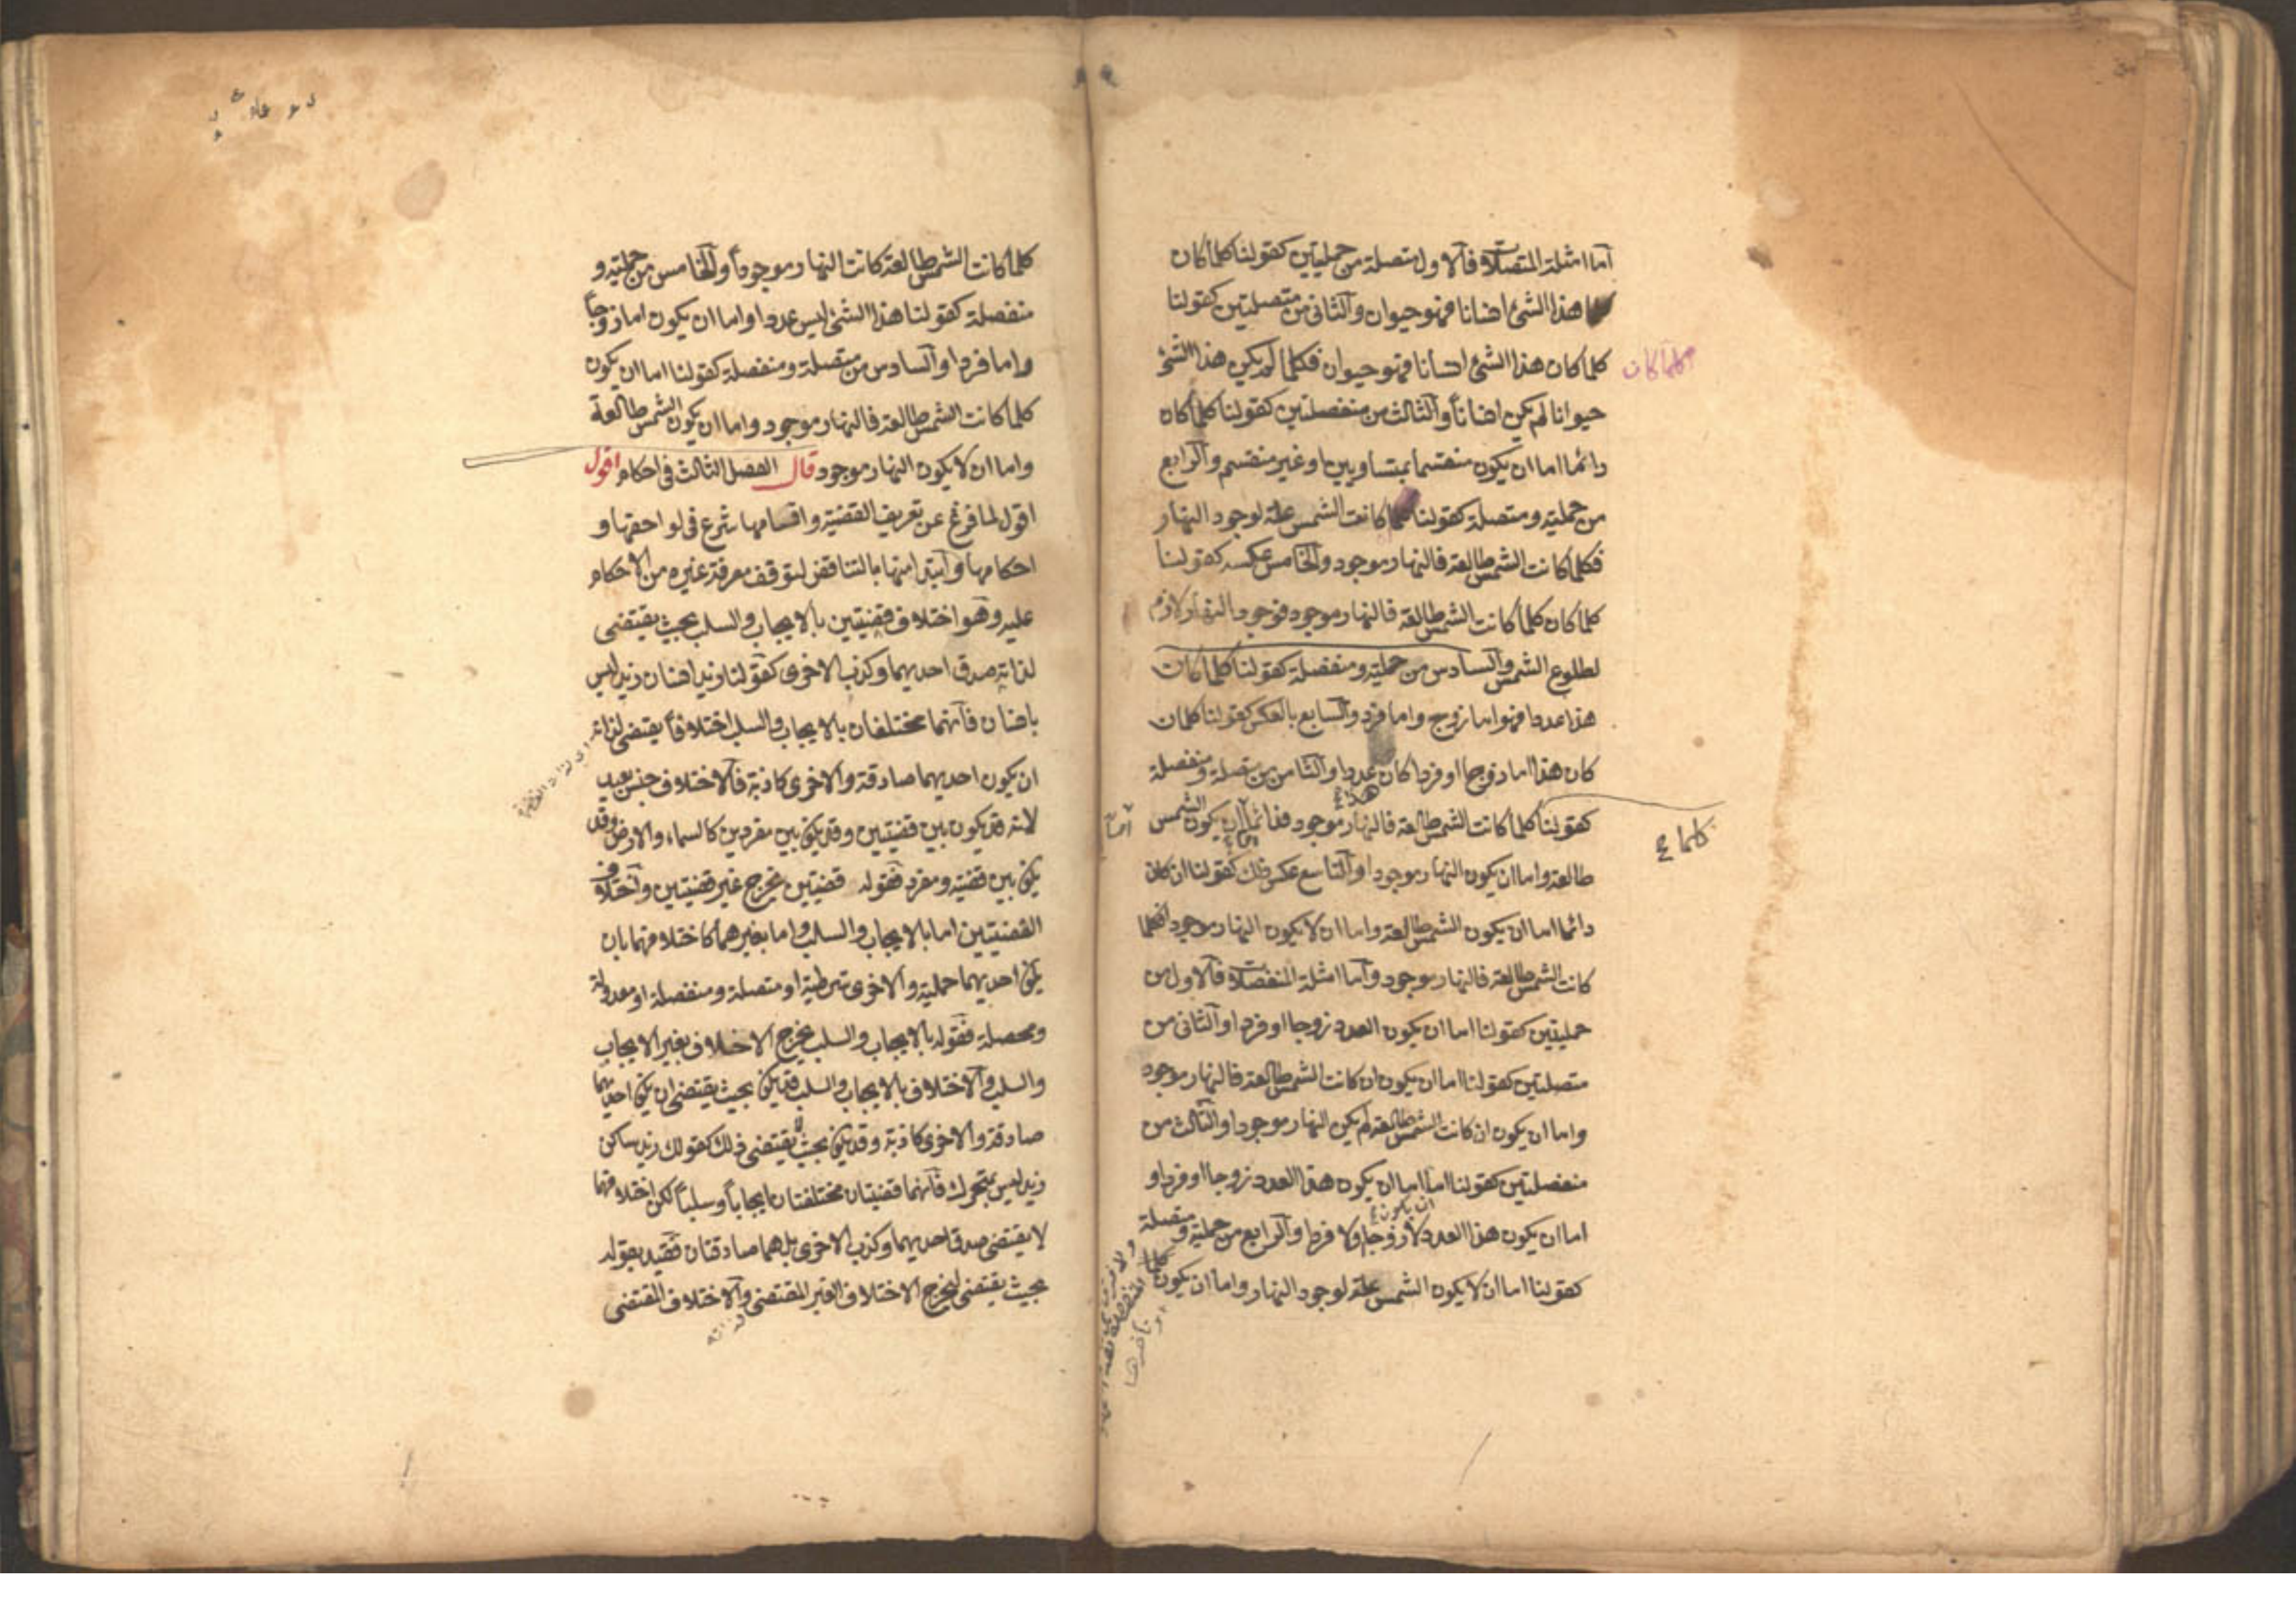 اما امثلة المتصلات فالاول متصلة من حمليتين كقولنا كلما كان
هذا الشئ انسانا فهو حيوان والثانى من متصلتين كقولنا
كلما كان هذا الشئ انسانا فهو حيوان فكلما لم يكن هذا الشئ
كلما كان
حيوانا لم يكن انسانا والثالث من منفصلتين كقولنا كلما كان
دائما اما ان يكون منقسما بمتساويين او غير منقسم والرابع
من حملية ومتصلة كقولنا كانت الشمس علة لوجود النهار
فكلما كانت الشمس طالعة فالنهار موجود والخامس عكسه كقولنا
كلما كان كلما كانت الشمس طالعة فالنهار موجود فوجود النهار لازم
لطلوع الشمس والسادس من حملية ومنفصلة كقولنا كلما كان
هذا عددا فهو اما زوج واما فرد والسابع بالعكس كقولنا كلما
كان هذا اما زوجا او فردا كان عددا والثامن من متصلة ومنفصلة
هذا ع
كقولنا كلما كانت الشمس طالعة فالنهار موجود فدائما ان يكون الشمس
اما
كلما ع
طالعة واما ان يكون النهار موجودا والتاسع عكس ذلك كقولنا ان كان
دائما اما ان يكون الشمس طالعة واما ان لا يكون النهار موجودا فكلما
كانت الشمس طالعة فالنهار موجود واما امثلة المنفصلات فالاول من
حمليتين كقولنا اما ان يكون العدد زوجا او فردا والثانى من
متصلتين كقولنا اما ان يكون ان كانت الشمس طالعة فالنهار موجود
واما ان يكون ان كانت الشمس طالعة لم يكن النهار موجودا والثالث من
منفصلتين كقولنا اما اما ان يكون هذا العدد زوجا او فردا و
ان يكون ع
اما ان يكون هذا العدد لا زوجا ولا فردا والرابع من حملية ومتصلة
كقولنا اما ان لا يكون الشمس علة لوجود النهار واما ان يكون كلما
كلما كانت الشمس طالعة كانت النهار موجودا والخامس من حملية و
منفصلة كقولنا هذا الشئ ليس عددا واما ان يكون اما زوجا
واما فردا والسادس من متصلة ومنفصلة كقولنا اما ان يكون
كلما كانت الشمس طالعة فالنهار موجود واما ان يكون الشمس طالعة
واما ان لا يكون النهار موجود قال الفصل الثالث فى احكام اقول
اقول لما فرغ عن تعريف القضية واقسامها شرع فى لواحقها و
احكامها وابتدا منها بالتناقض لتوقف معرفة غيره من الاحكام
عليه وهو اختلاف قضيتين بالايجاب والسلب بحيث يقتضى
لذاته صدق احديهما وكذب الاخرى كقولنا زيد انسان زيد ليس
بانسان فانهما مختلفان بالايجاب والسلب اختلافا يقتضى لذاته
ان يكون احديهما صادقة والاخرى كاذبة فالاختلاف جنس بعيد
لانه قد يكون بين قضيتين وقد يكن بين مفردين كالسماء والارض وقد
يكن بين قضية ومفرد فقوله قضيتين يخرج غير قضيتين واختلاف
القضيتين اما بالايجاب والسلب واما بغيرهما كاختلافهما بان
يكن احديهما حملية والاخرى شرطية او متصلة ومنفصلة او معدولة
ومحصلة فقوله بالايجاب والسلب يخرج الاختلاف بغير الايجاب
والسلب والاختلاف بالايجاب والسلب قد يكن بحيث يقتضى ان يكن احديهما
صادقة والاخرى كاذبة وقد يكن بحيث لا يقتضى ذلك كقولك زيد ساكن
زيد ليس بمتحرك فانهما قضيتان مختلفتان ايجابا وسلبا لكن اختلافهما
لا يقتضى صدق احديهما وكذب الاخرى بل هما صادقتان فقيد بقوله
بحيث يقتضى ليخرج الاختلاف الغير المقتضى والاختلاف المقتضى